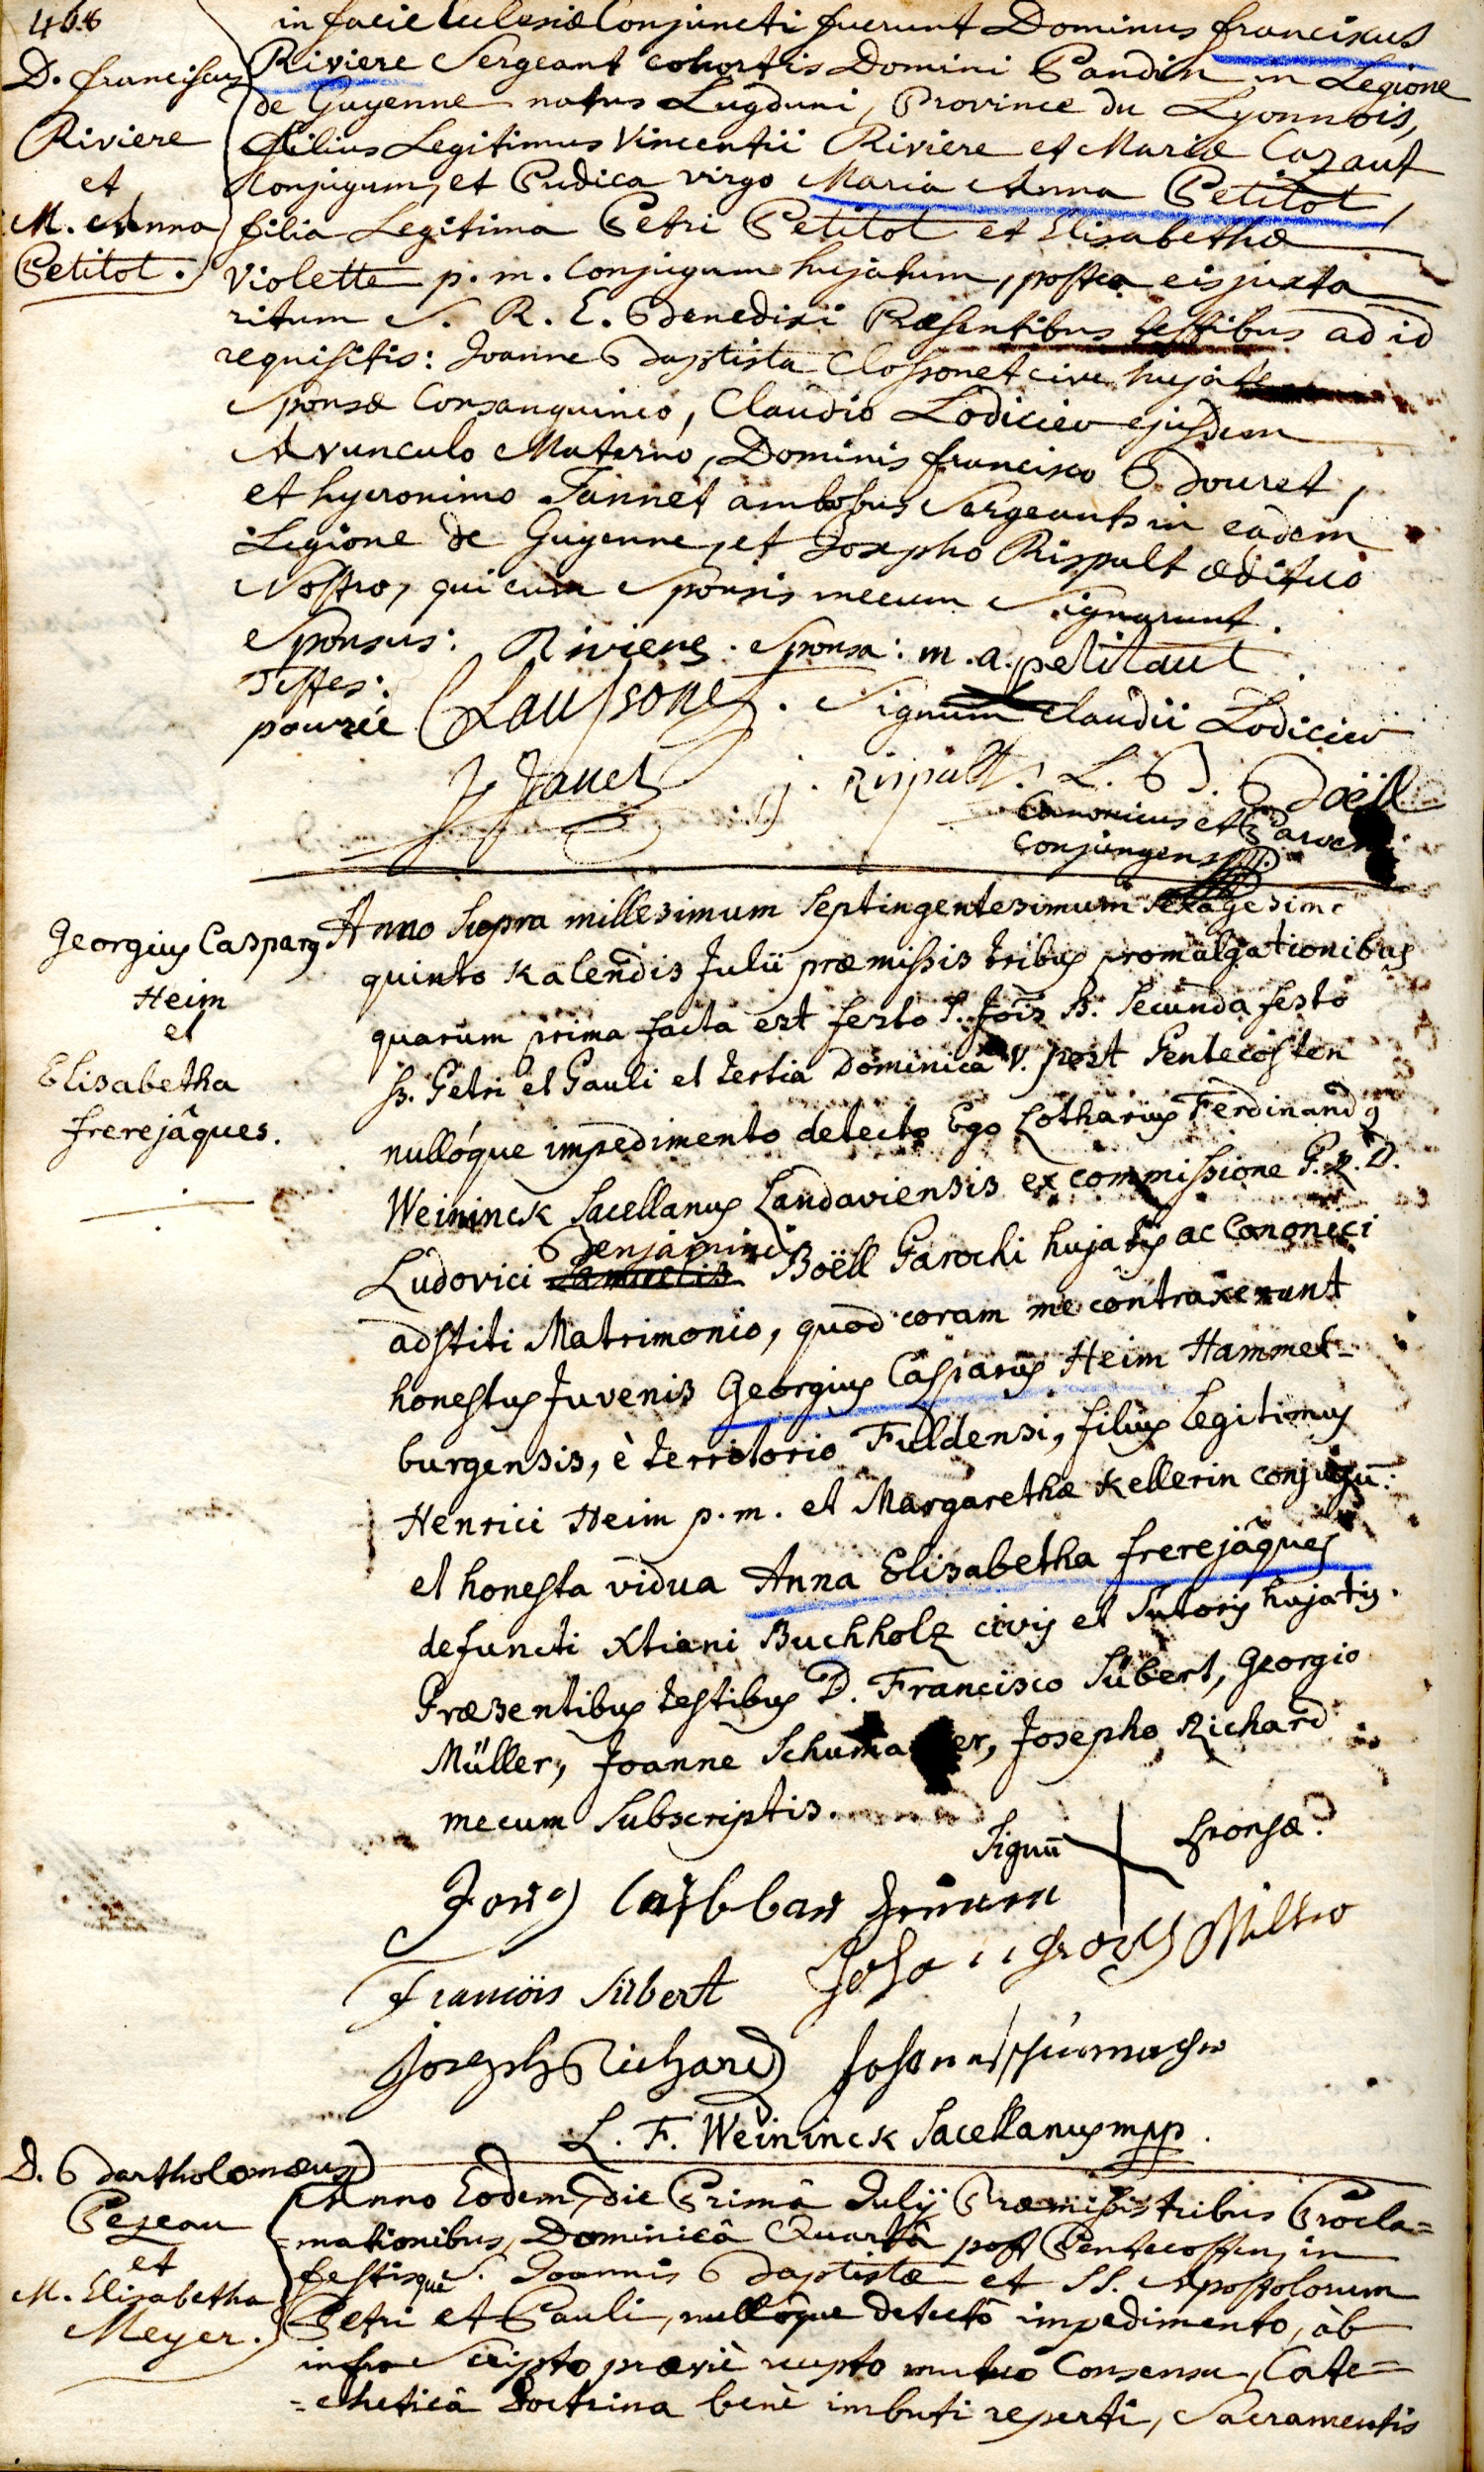 468
in facie Ecclesiæ Conjuncti fuerunt Dominus franciscus
Riviere Sergeant cohortis Domini Pandin in Legione
de Guyenne natus Lugduni, Province du Lyonnois,
filius Legitimus Vincentii Riviere et Mariæ Cazaut
Conjugum, et Pudica virgo Maria Anna Petitot
filia Legitima Petri Petitot et Elisabethæ
Violette p. m. Conjugum hujatum, postea eis juxta
ritum S. R. E. Benedixi Præsentibus testibus ad id
requisitis: Joanne Baptista Clossonet cive hujate
Sponsæ Consanguineo, Claudio Lodiciev ejusdem
Avunculo Materno, Dominis francisco Bouret,
et hyeronimo Jannet ambobus Sergeants in eâdem
Legione de Guyenne, et Josepho Rispalt ædituo
Nostro, qui cum Sponsis mecum Signarunt.
Sponsus: Riviere. Sponsa: m. a. petitaut
Testes:
pourée Claussonet. Signum Claudii Lodiciev
J Janet j. Rispalt. L. B. Boëll
Canonicus et Parochus
Conjungens mpp.
D. franciscus
Riviere
et
M. Anna
Petitot.
Georgius Casparus
Heim
et
Elisabetha
frerejâques.
Anno Supra millesimum Septingentesimum Sexagesimo
quinto Kalendis Julii præmissis tribus promulgationibus
quarum prima facta est festo S. Jois B. Secunda festo
SS. Petri et Pauli et tertia Dominicâ V. post Pentecosten
nullóque impedimento detecto Ego Lotharius Ferdinandus
Weininck Sacellanus Landaviensis ex commissione P. R. D.
Benjamini
Ludovici Samuelis Boëll Parochi hujatis ac Canonici
adstiti Matrimonio, quod coram me contraxerunt
honestus Juvenis Georgius Casparus Heim Hammel-
burgensis, è territorio Fuldensi, filius legitimus
Henrici Heim p. m. et Margarethæ Kellerin conjugū:
et honesta vidua Anna Elisabetha frerejâques
defuncti Xtiani Buchholz civis et Sutoris hujatis.
Præsentibus testibus D. Francisco Sübert, Georgio
Müller, Joanne Schumacher, Josepho Richard
mecum Subscriptis.
Signū Sponsæ
François Sübert
Joseph Richard Johannes Schumacher
L. F. Weininck Sacellanus mpp.
D. Bartholomæus
Pezeau
et
M. Elisabetha
Meyer.
Anno Eodem, die Primâ Julij Præmissis tribus Procla=
=mationibus, Dominicâ Quartâ post Pentecosten, in
festisque S. Joannis Baptistæ et SS. Apostolorum
Petri et Pauli, nullôque detectô impedimento, àb
infra Scripto præviè recepto mutuo Consensu, Cate=
=cheticâ Doctrina benè imbuti reperti, Sacramentis